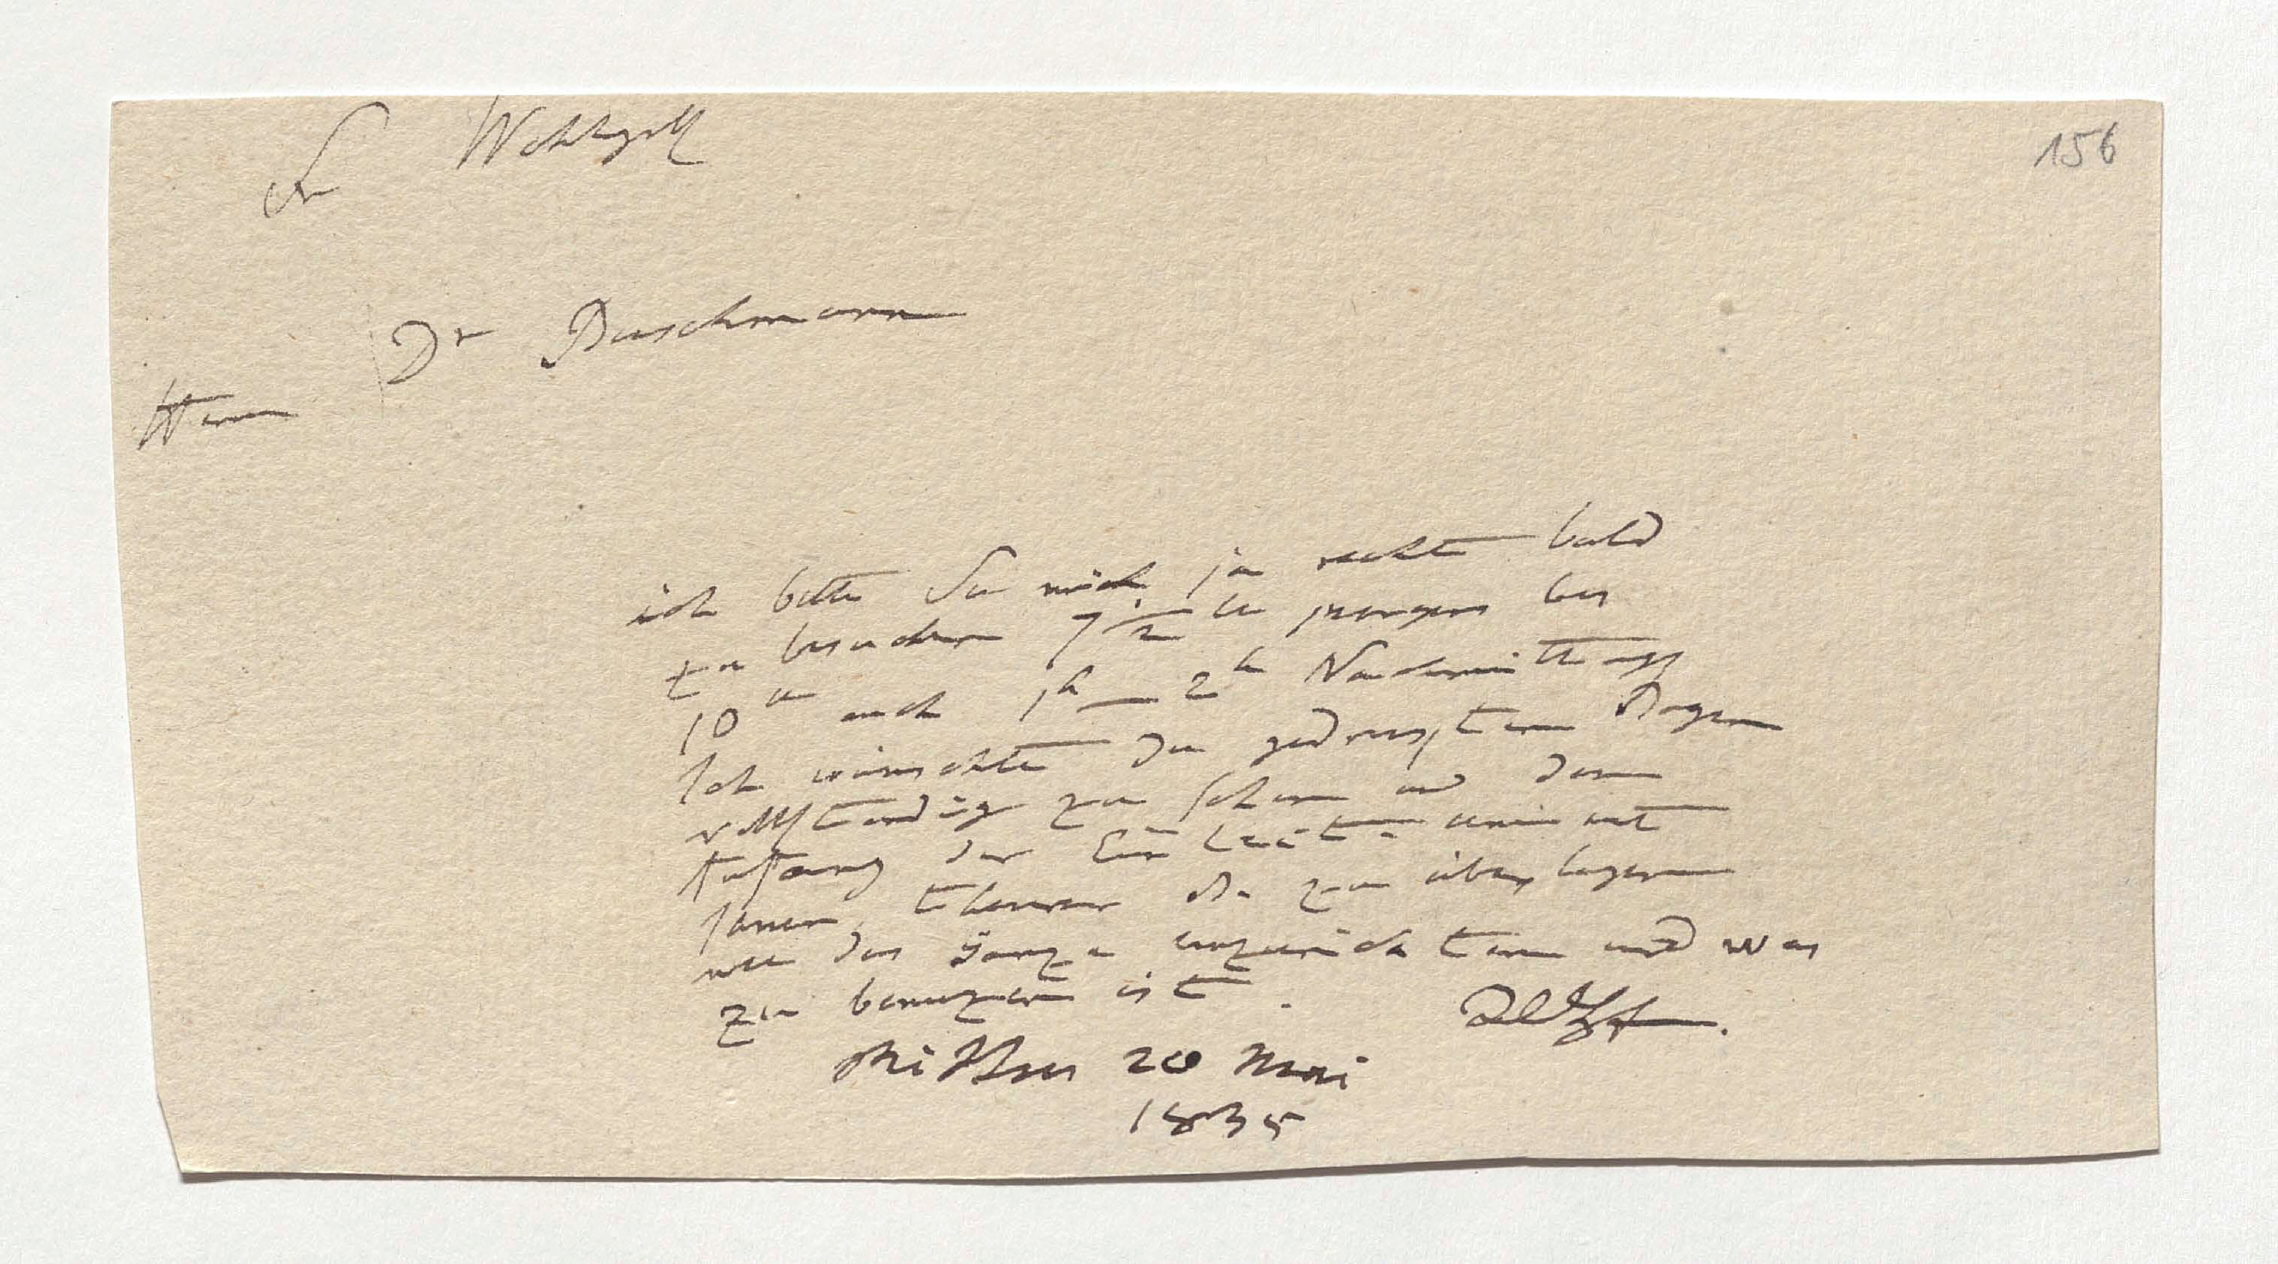 Sr Wohlgeb
156
Dr Buschmann
Herrn
ich bitte Sie mich ja recht bald
zu besuchen 7 1/2 u morgens bis
10 u auch 1h — 2h Nachmittags
Ich wünschte die gedruckten Bogen
vollständig zu sehen und den
Anfang der
lassen, theurer zu überlegen
wie das Ganze einzurichten und was
zu benuzen ist.
AlHumboldt.
Mittw 20 Mai
1835